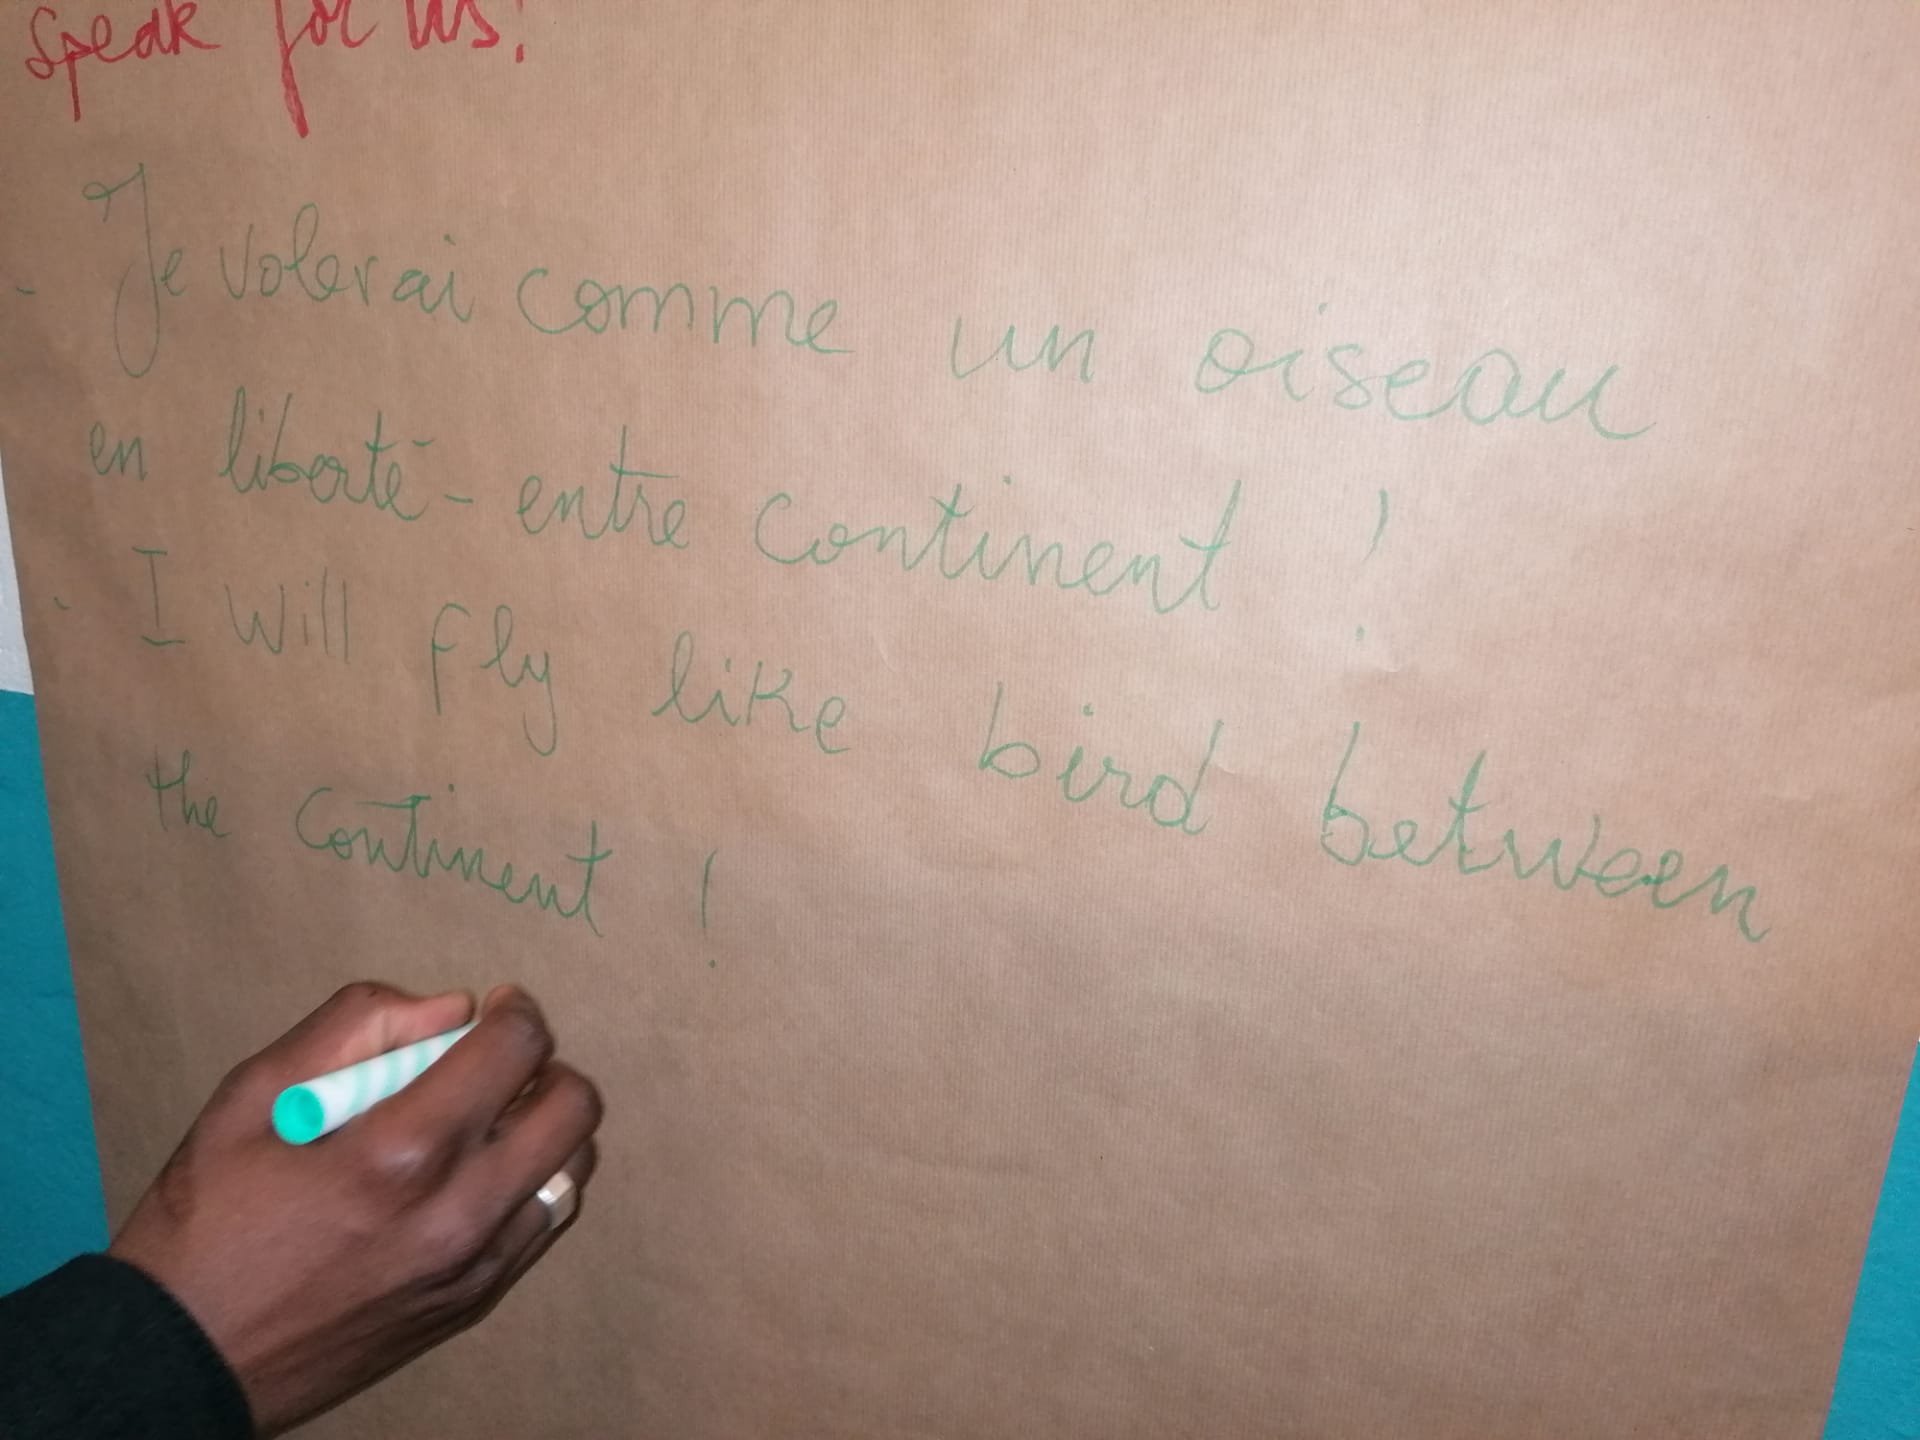 speak for us!
- Je volerai comme un oiseau
en liberté - entre continent !
- I will fly like bird between
the continent !